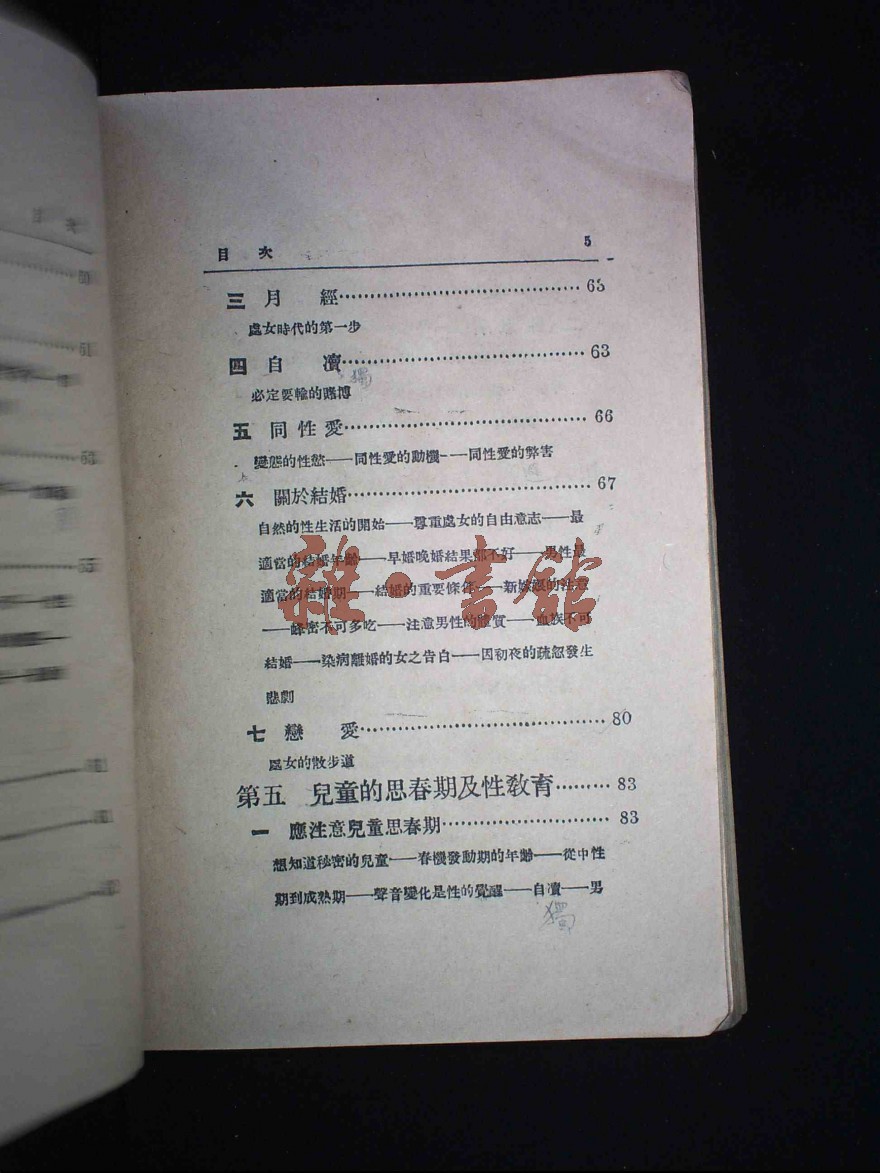 目 次 5
三 月 經 63
處女時代的第一步
四 自 凟 63
獨
必定要輸的賭博
五 同性愛 66
變態的性慾——同性愛的動機——同性愛的弊害
六 關於結婚 67
自然的性生活的開始——尊重處女的自由意志——最
適當的結婚年齡——早婚晚婚結果都不好——男性最
適當的結婚期——結婚的重要條件——新嫁娘的注意
——蜂密不可多吃——注意男性的體質——血族不可
結婚——染病離婚的女之告白——因初夜的疏忽發生
悲劇
雜·書館
七 戀 愛 80
處女的散步道
第五 兒童的思春期及性教育 83
一 應注意兒童思春期 83
想知道秘密的兒童——春機發動期的年齡——從中性
期到成熟期——聲音變化是性的覺醒——自凟——男
獨